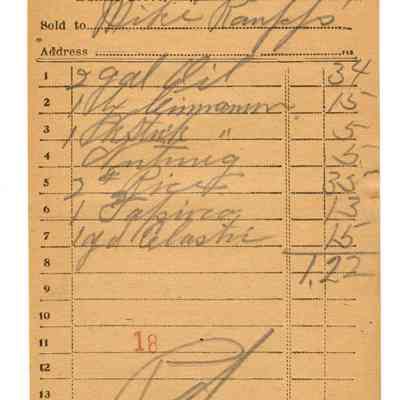 Sold to Mike Rampfs
Address
1 2 gal Oil 34
2 1 lb Cinnamon 15
3 1 Pk Stick " 5
4 Nutmeg 5
5 2 # Rice 35
6 1 Tapioca 13
7 1 yd Elastic 15
8 1.22
9
10
11 18
12
13 Pd